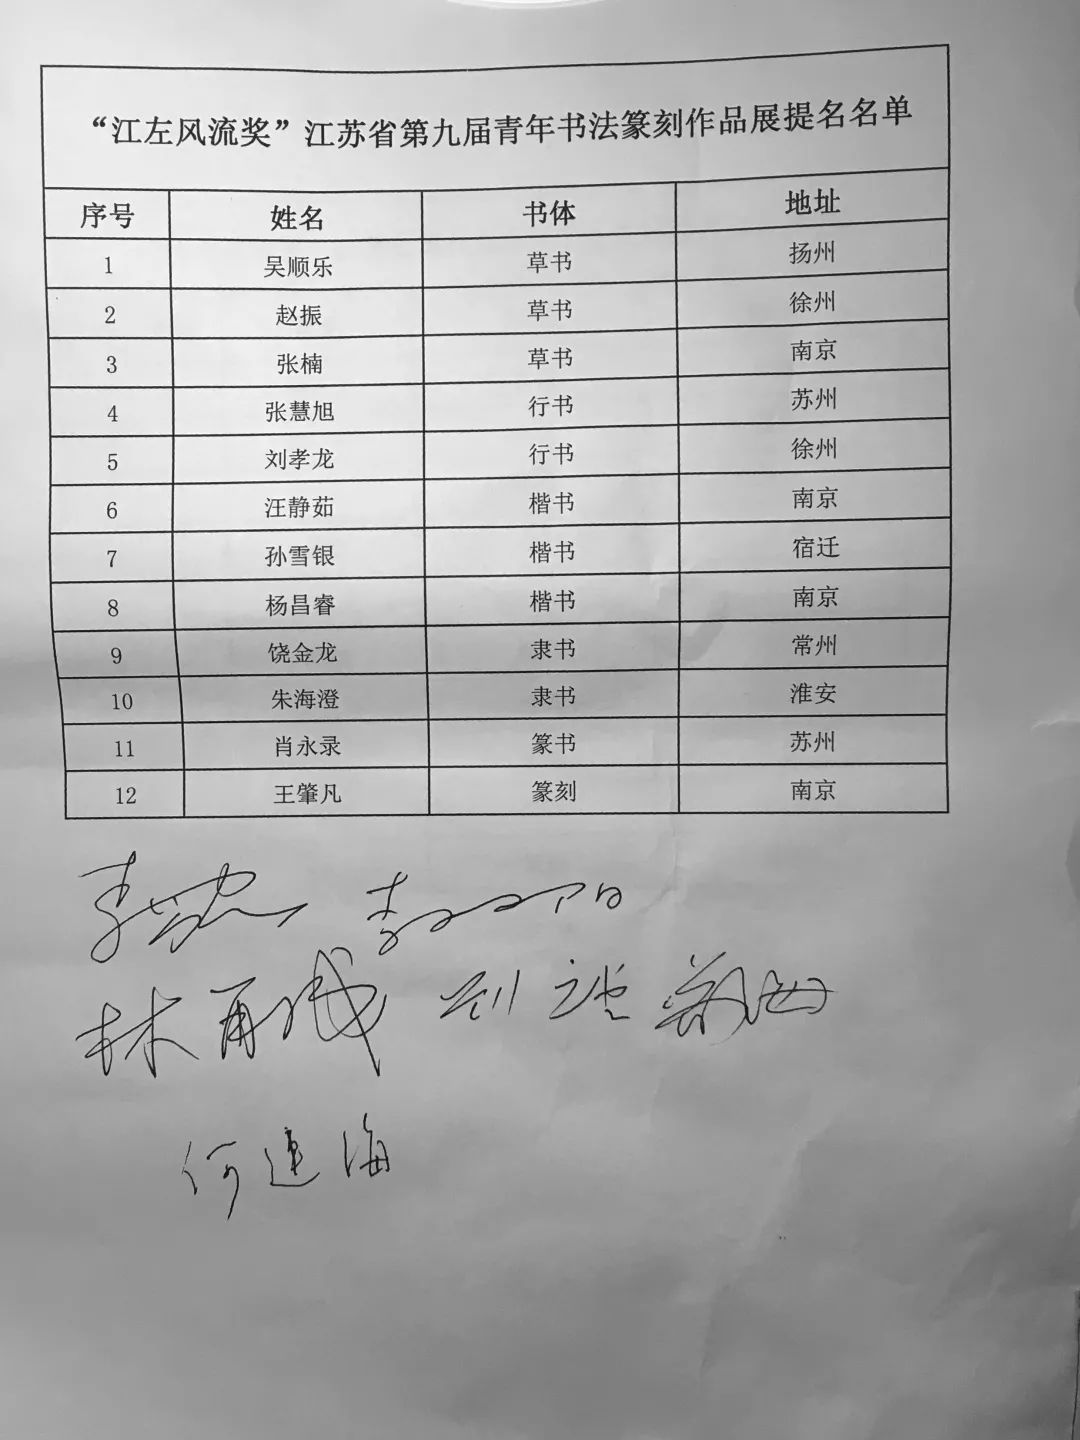 “江左风流奖”江苏省第九届青年书法篆刻作品展提名名单
序号 姓名 书体 地址
1 吴顺乐 草书 扬州
2 赵振 草书 徐州
3 张楠 草书 南京
4 张慧旭 行书 苏州
5 刘孝龙 行书 徐州
6 汪静茹 楷书 南京
7 孙雪银 楷书 宿迁
8 杨昌睿 楷书 南京
9 饶金龙 隶书 常州
10 朱海澄 隶书 淮安
11 肖永录 篆书 苏州
12 王肇凡 篆刻 南京
林再成
何连海